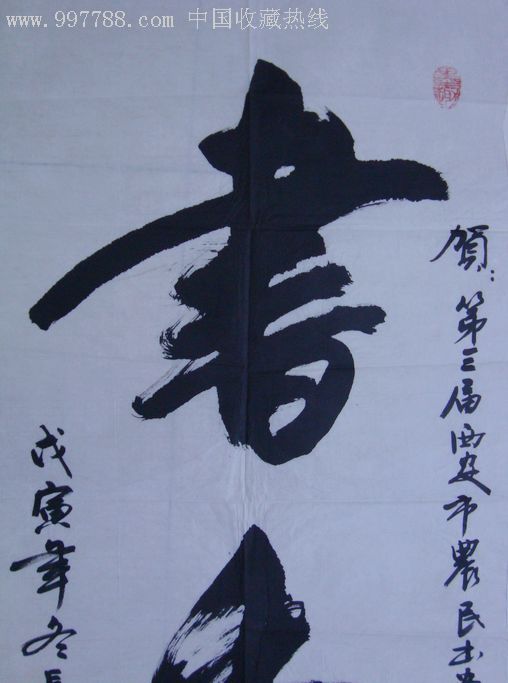 www.997788.com 中国收藏热线
賀:第三届西安市農民书
書
戊寅年冬